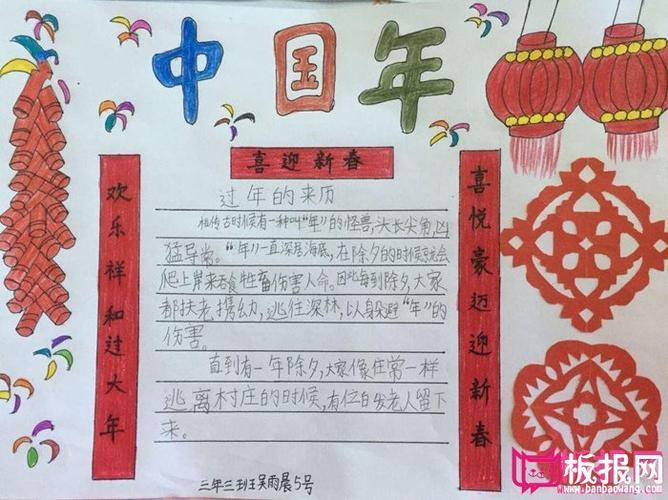 中国年
喜迎新春
欢乐祥和过大年
喜悦豪迈迎新春
过年的来历
相传古时候有一种叫“年”的怪兽,头长尖角,凶
猛异常。“年”一直深居海底,在除夕的时候就会
爬上岸来吞食牲畜伤害人命。因此每到除夕,大家
都扶老携幼,逃往深林,以躲避“年”的
伤害。
直到有一年除夕,大家像往常一样
逃离村庄的时候,有位白发老人留下
来。
三年三班吴雨晨5号
板报网
www.banbaowang.com